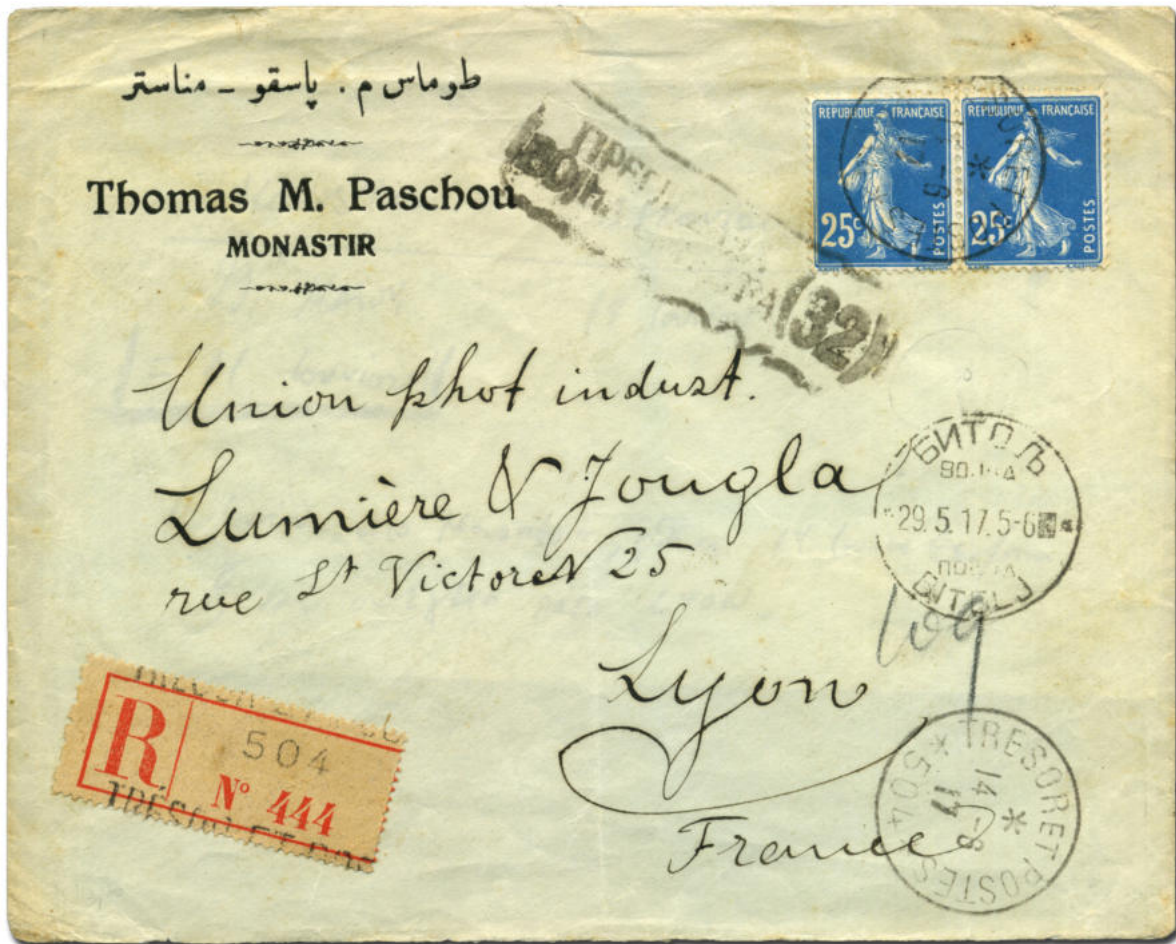 طوماس م. پاسقو - مناستر
Thomas M. Paschou
MONASTIR
REPUBLIQUE FRANÇAISE
25c
POSTES
REPUBLIQUE FRANÇAISE
25c
POSTES
(32)
Union phot indust.
Lumière & Jougla
rue St Victoret 25
Lyon
France
БИТОЉ
29.5.17.5-6
BITOLJ
109
R
504
N° 444
TRÉSOR ET POS
* TRESOR ET POSTES
14-8
17
* 504